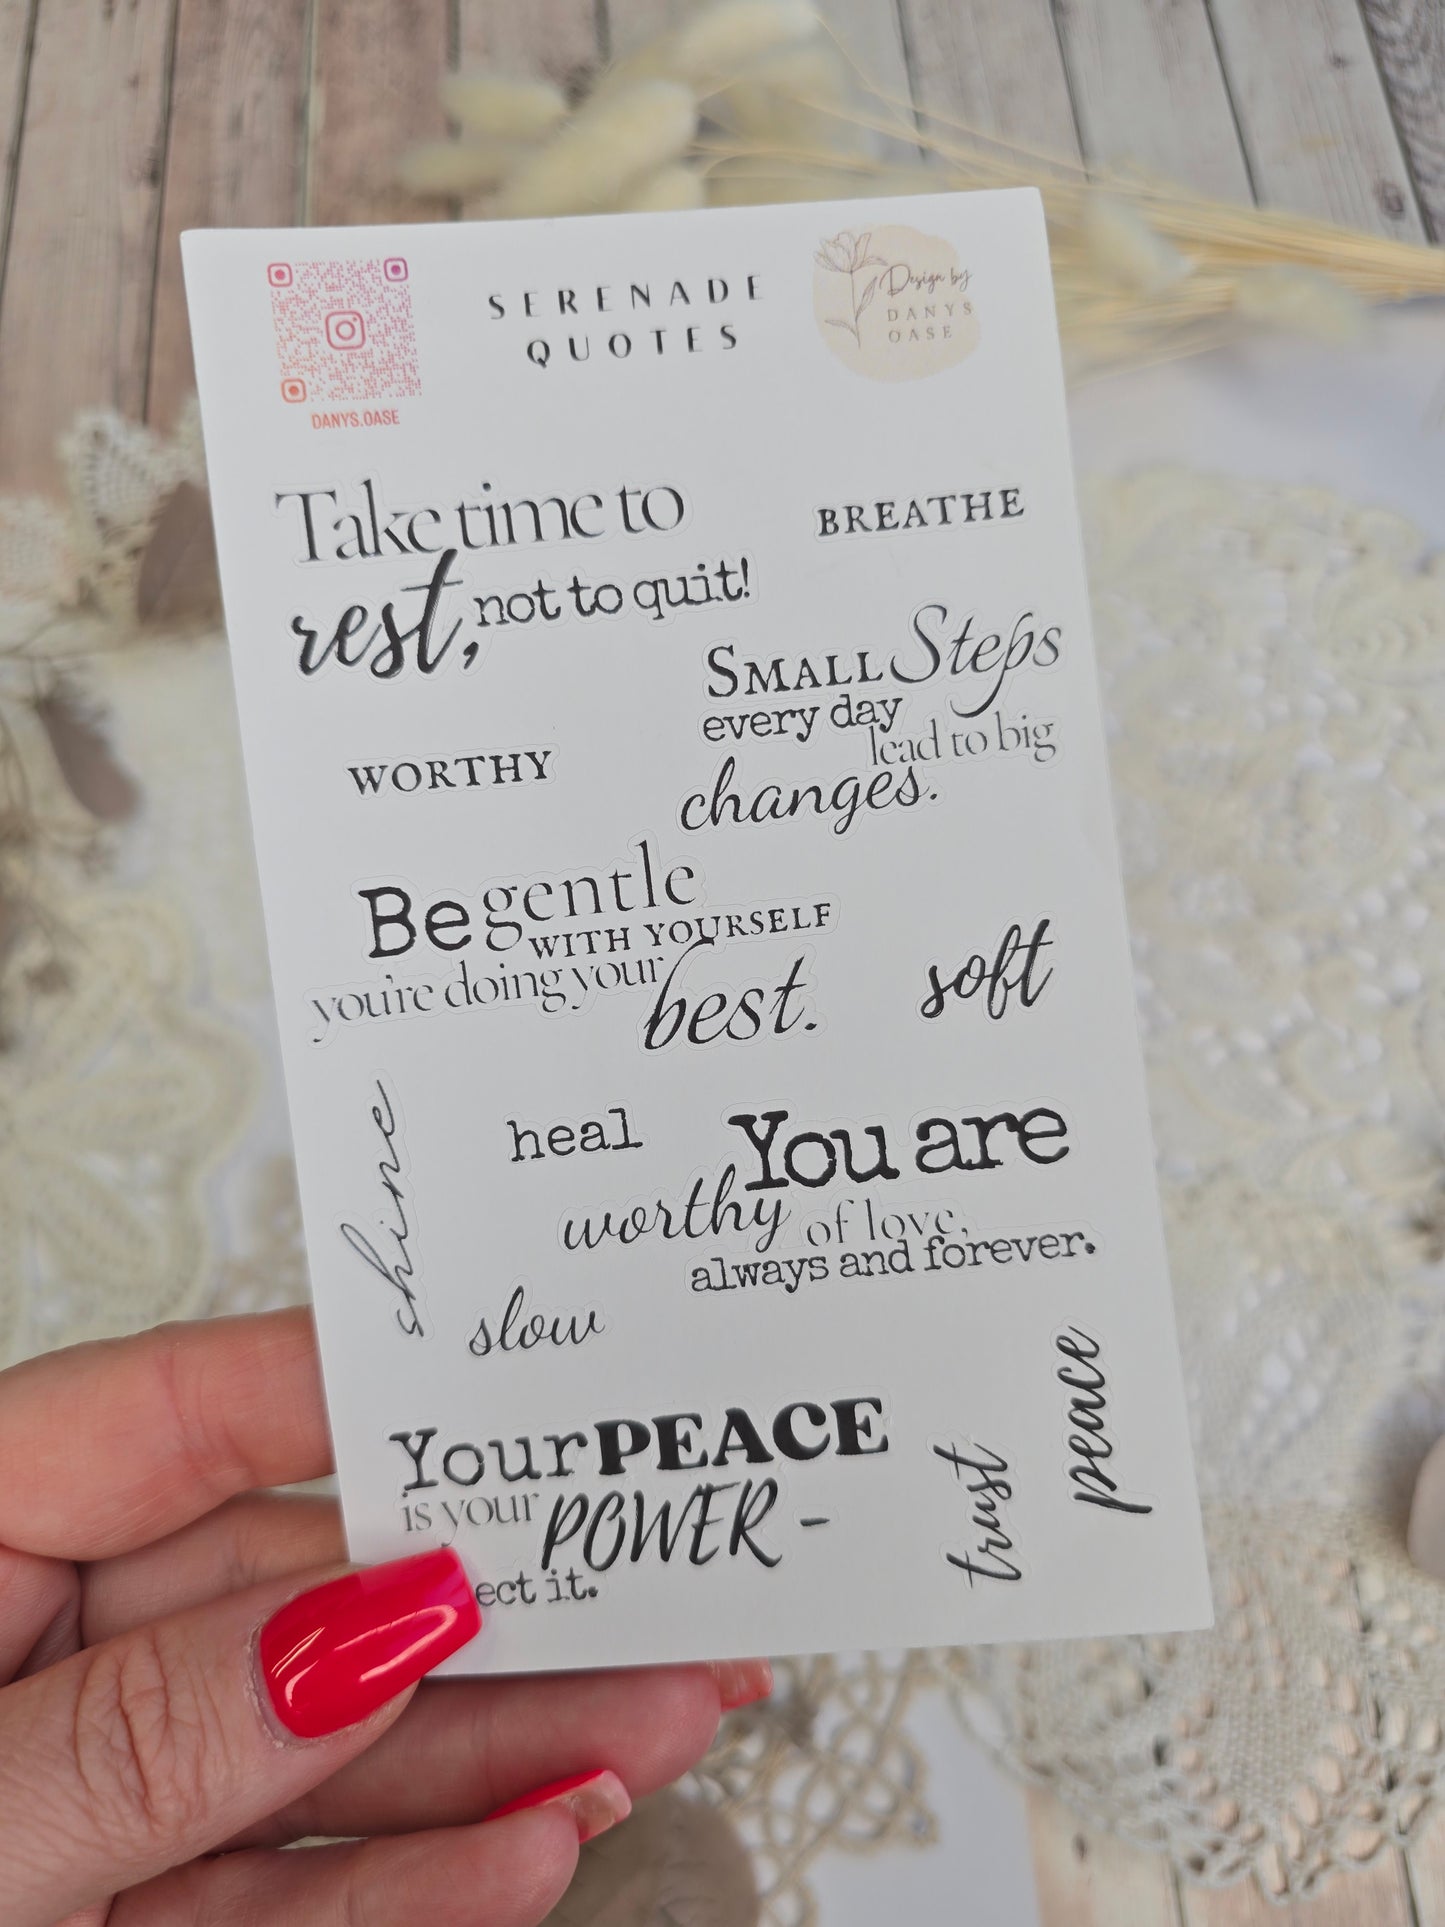 SERENADE
QUOTES
Design by
DANYS
OASE
DANYS.OASE
Take time to
rest, not to quit!
BREATHE
SMALL Steps
every day
lead to big
changes.
WORTHY
Be gentle
WITH YOURSELF
you're doing your
best.
soft
shine
heal
You are
worthy of love,
always and forever.
slow
Your PEACE
is your POWER -
ect it.
trust
peace